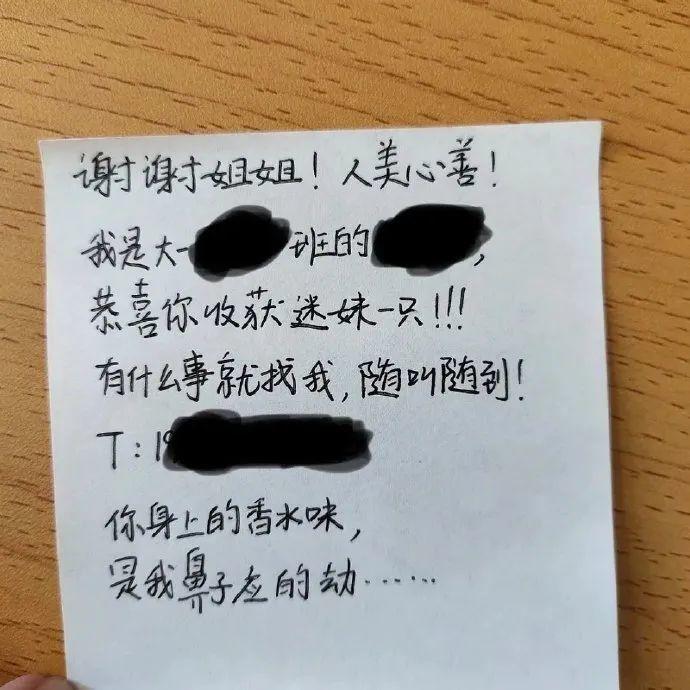 谢谢姐姐！人美心善！
我是大一班的，
恭喜你收获迷妹一只!!!
有什么事就找我，随叫随到！
T：19
你身上的香水味，
是我鼻子应的劫……